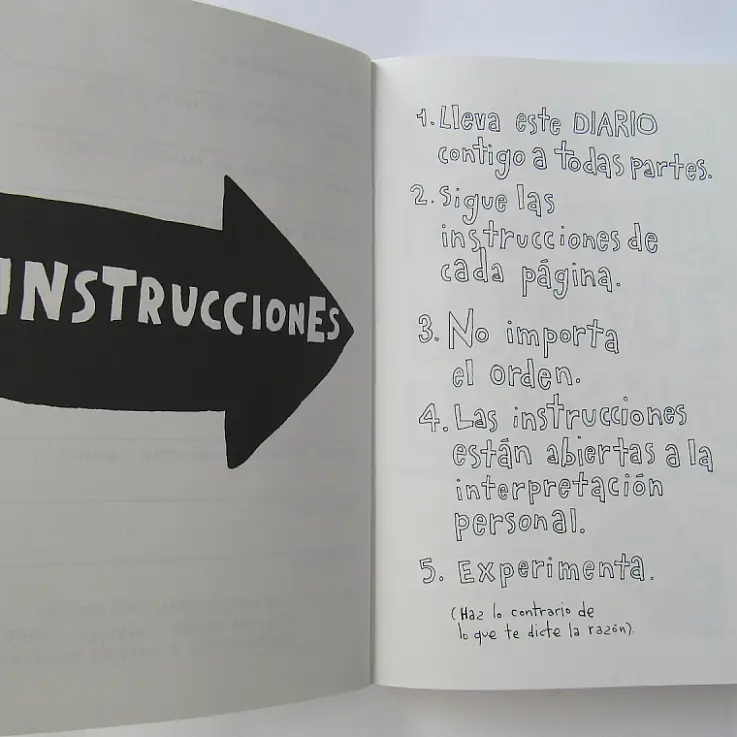 INSTRUCCIONES
1. Lleva este DIARIO
contigo a todas partes.
2. Sigue las
instrucciones de
cada página.
3. No importa
el orden.
4. Las instrucciones
están abiertas a la
interpretación
personal.
5. Experimenta.
(Haz lo contrario de
lo que te dicte la razón).